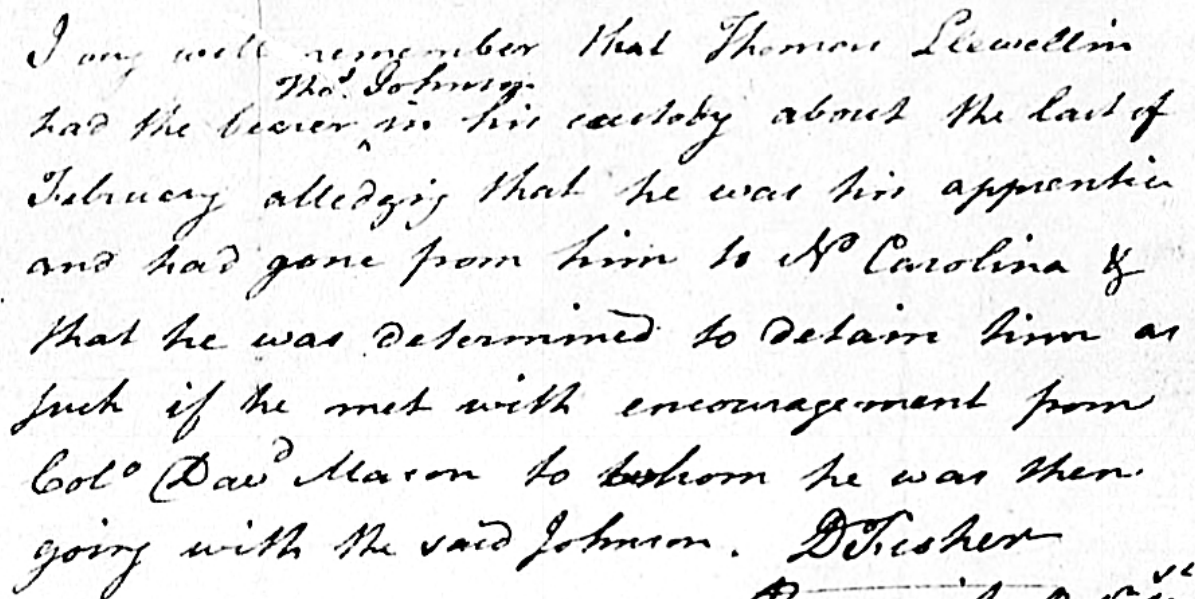 I very well remember that Thomas Llewellin
Thos. Johnson
had the bearer ^ in his custody about the last of
February alledging that he was his apprentice
and had gone from him to No Carolina &
that he was determined to detain him as
such if he met with encouragement from
Colo Davd Mason to whom he was then
going with the said Johnson. DFisher